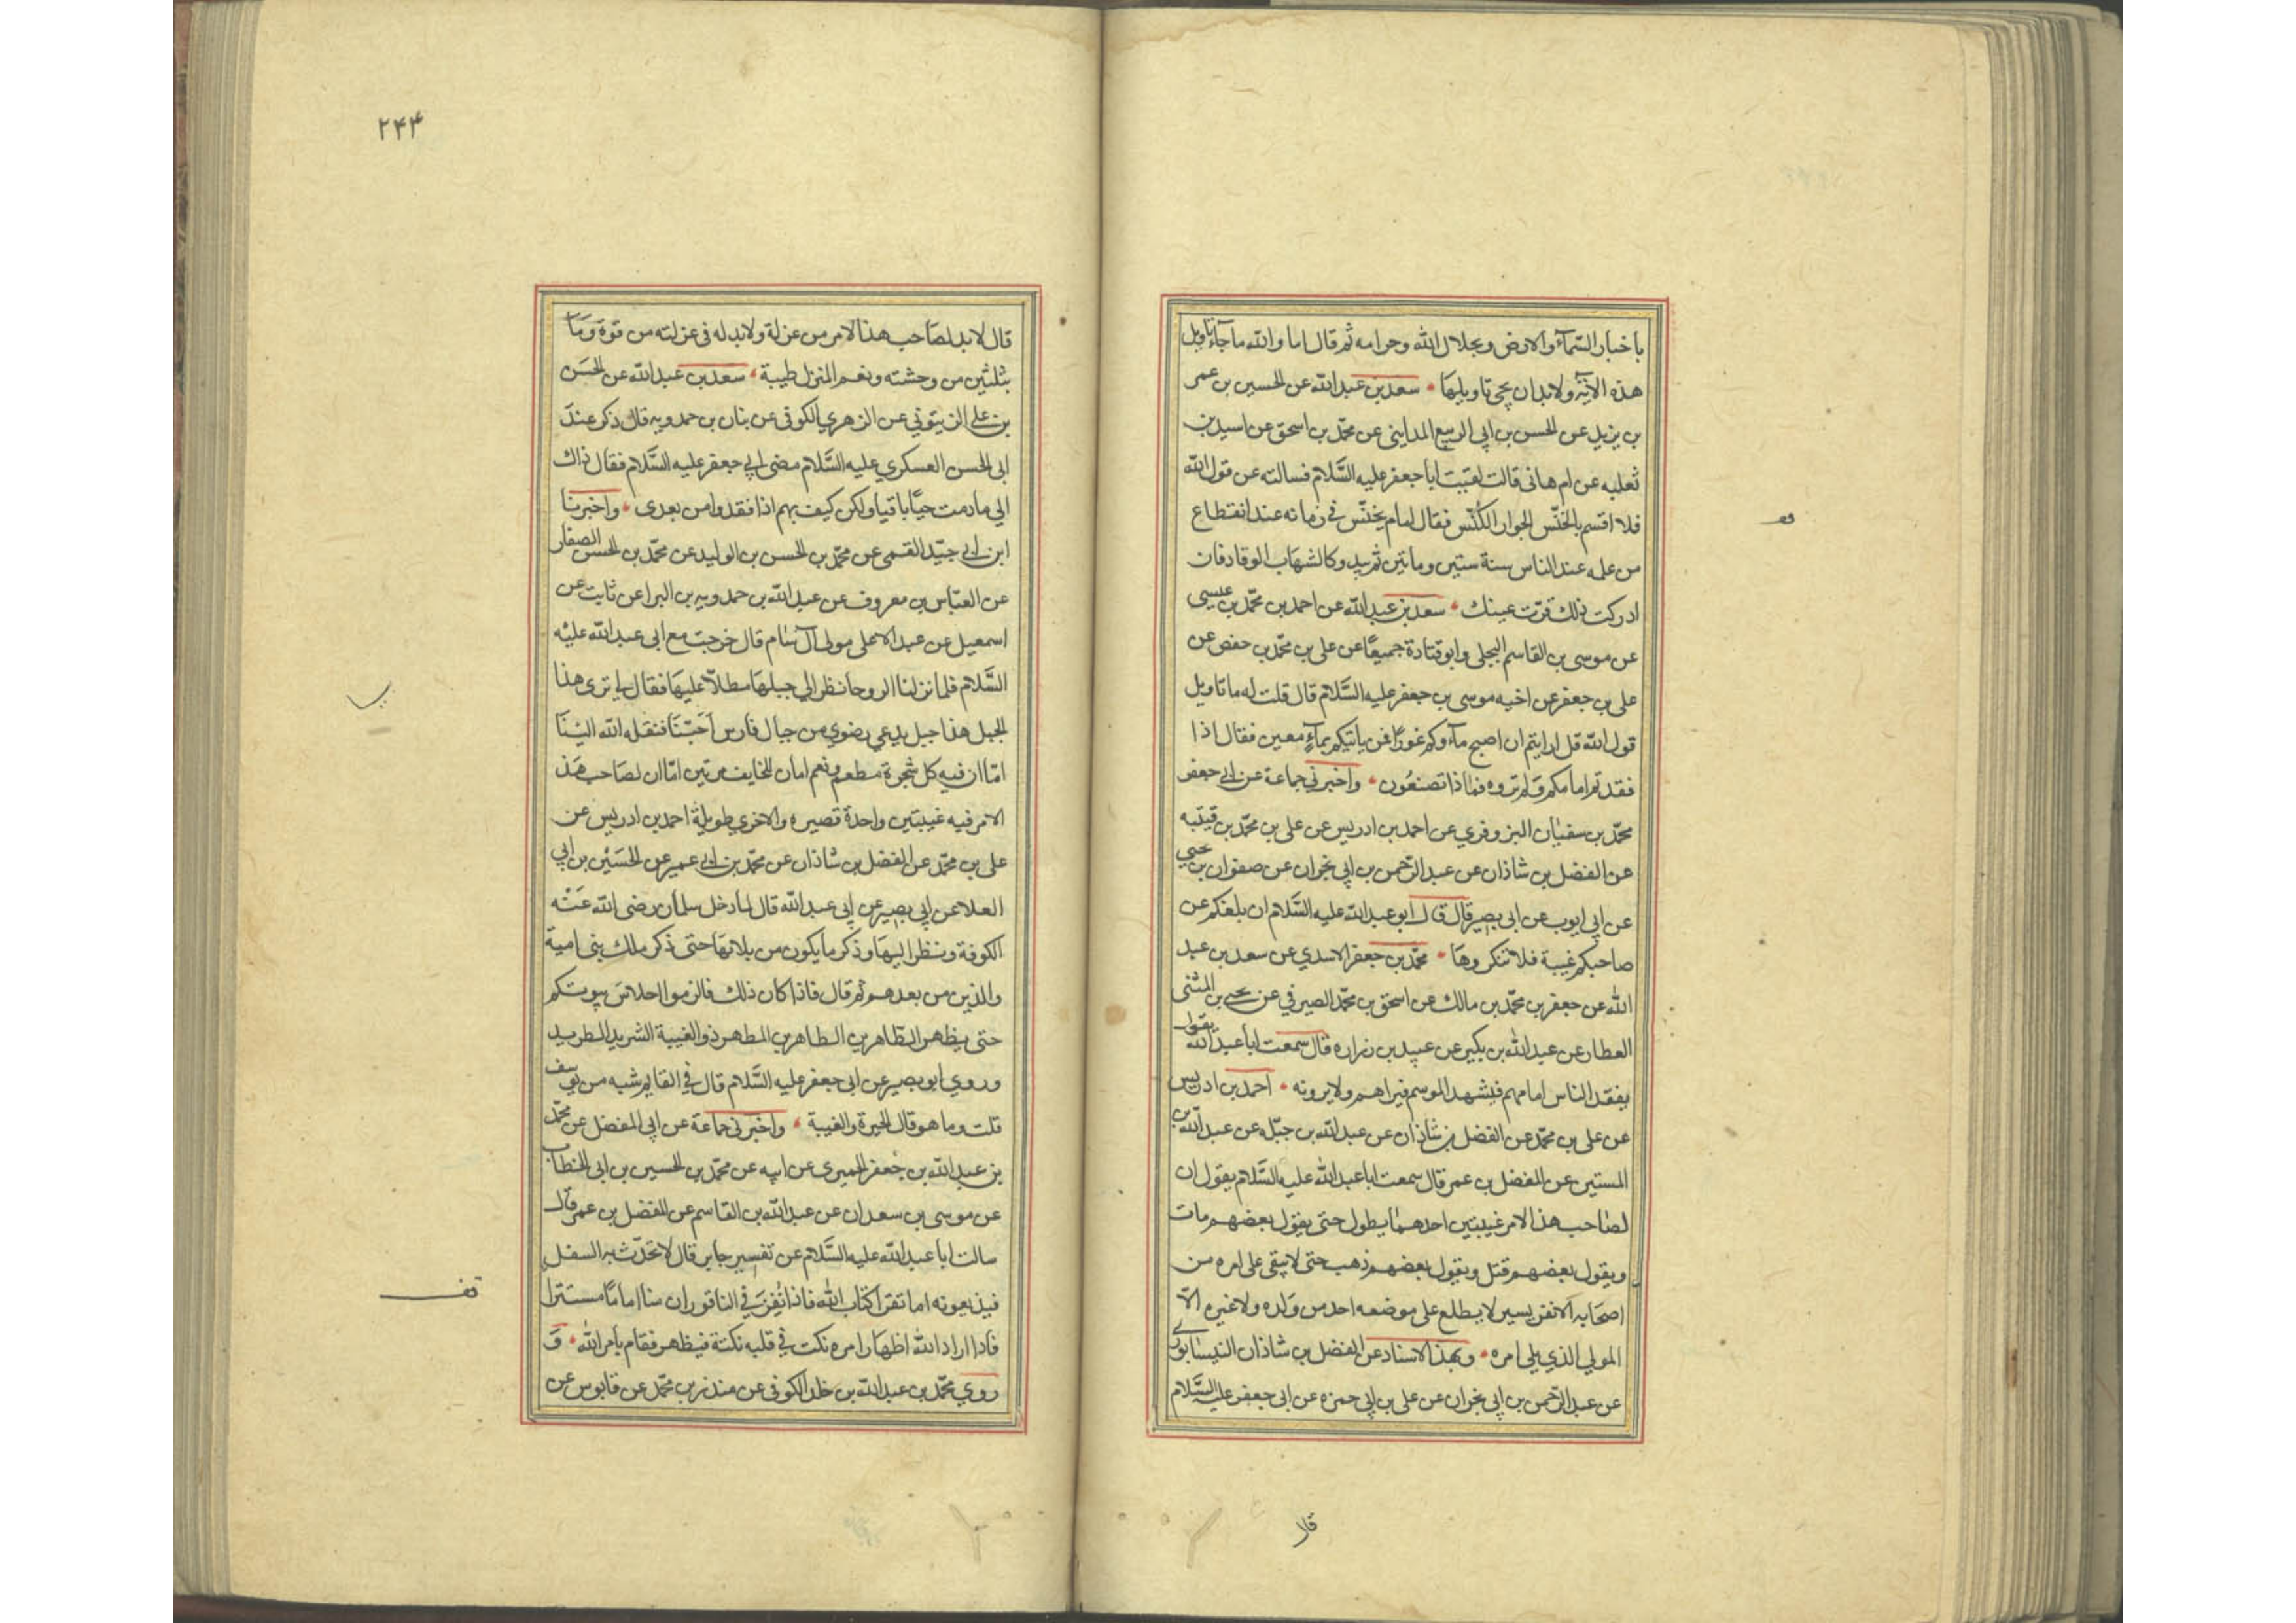 باخبار السّمآء والارض وبحلال الله وحرامه ثم قال اما والله ما جآء تاويل
هذه الاية ولابد ان يجئ تاويلها سعد بن عبدالله عن الحسين بن عمر
بن يزيد عن الحسن بن ابي الربيع المدايني عن محمّد بن اسحق عن اسيد بن
ثعلبه عن ام هانى قالت لقيت ابا جعفر عليه السَّلام فسالته عن قول الله
فلا اقسم بالخنّس الجوار الكُنّس فقال امام يخنّس في زمانه عند انقطاع
من علمه عند الناس سنة ستين ومأتين ثم يبدو كالشهاب الوقاد فان
ادركت ذلك قرّت عينك سعد بن عبدالله عن احمد بن محمّد بن عيسى
عن موسى بن القاسم البجلى وابو قتادة جميعًا عن على بن محمّد بن حفص عن
على بن جعفر عن اخيه موسى بن جعفر عليه السَّلام قال قلت له ما تاويل
قول الله قل ارايتم ان اصبح مآوكم غورًا فمن ياتيكم بمآءٍ معين فقال اذا
فقدتم امامكم ولم تروه فماذا تصنعُون واخبرني جماعة عن ابي جعفر
محمّد بن سفيان البزوفري عن احمد بن ادريس عن على بن محمّد بن قيتبه
عن الفضل بن شاذان عن عبد الرّحمن بن ابي نجران عن صفوان بن يحيى
عن ابي ايوب عن ابى بصير قال قال ابو عبدالله عليه السَّلام ان بلغكم عن
صاحبكم غيبة فلا تنكروها محمّد بن جعفر الاسدي عن سعد بن عبد
الله عن جعفر بن محمّد بن مالك عن اسحق بن محمّد الصيرفي عن يحيى بن المثنى
العطار عن عبدالله بن بكير عن عبيد بن زراره قال سمعت ابا عبدالله يقول
يفقد الناس امامهم فيشهد الموسم فيراهم ولا يرونه احمد بن ادريس
عن على بن محمّد عن الفضل بن شاذان عن عبدالله بن جبّله عن عبدالله بن
المستنير عن المفضل بن عمر قال سمعت ابا عبدالله عليه السَّلام يقول ان
لصاحب هذا الامر غيبتين احدهما يطول حتى يقول بعضهم مات
ويقول بعضهم قتل ويقول بعضهم ذهب حتى لا يبقى على امره من
اصحابه الا نفر يسير لا يطلع على موضعه احد من ولده ولا غيره الّا
المولي الذي يلي امره وبهذا الاسناد عن الفضل بن شاذان النيسابوري
عن عبد الرّحمن بن ابي نجران عن على بن ابي حمزه عن ابى جعفر عليه السَّلام
قال
۲۴۴
قال لابد لصاحب هذا الامر من عزلة ولابد له في عزلته من قوة وما
بثلثين من وحشته ونعم المنزل طيبة سعد بن عبدالله عن الحسن
بن علي الزيتوني عن الزهري الكوفى عن بنان بن حمدويه قال ذكر عند
ابى الحسن العسكري عليه السَّلام مضى ابي جعفر عليه السَّلام فقال ذاك
الي ما دمت حيًّا باقيا ولكن كيف بهم اذا فقدوا من بعدى واخبرنا
ابن ابي جيّد القمى عن محمّد بن الحسن بن الوليد عن محمّد بن الحسن الصفار
عن العبّاس بن معروف عن عبدالله بن حمدويه بن البرا عن ثابت عن
اسمعيل عن عبد الاعلى مولى آل سام قال خرجت مع ابى عبدالله عليه
السَّلام فلما نزلنا الروحا نظر الي جبلها مطلّا عليها فقال لي ترى هذا
الجبل هذا جبل يدعي رضوي من جبال فارس احبّنا فنقله الله الينا
امّا ان فيه كل شجرة مطعم ونعم امان للخايف مرتين امّا ان لصاحب هذ
الامر فيه غيبتين واحدة قصيره والاخري طويلة احمد بن ادريس عن
على بن محمّد عن الفضل بن شاذان عن محمّد بن ابي عمير عن الحسين بن ابي
العلا عن ابي بصير عن ابي عبدالله قال لما دخل سلمان رضى الله عنه
الكوفة ونظر اليها وذكر ما يكون من بلائها حتى ذكر ملك بنى امية
والذين من بعدهم ثم قال فاذا كان ذلك فالزموا احلاس بيوتكم
حتى يظهر الطّاهر بن الطاهر بن المطهر ذو الغيبة الشريد الطريد
وروي ابو بصير عن ابى جعفر عليه السَّلام قال في القايم شبه من يوسف
قلت وما هو قال الحيرة والغيبة واخبرني جماعة عن ابي المفضل عن محمّد
بن عبدالله بن جعفر الحميرى عن ابيه عن محمّد بن الحسين بن ابى الخطاب
عن موسى بن سعدان عن عبدالله بن القاسم عن المفضل بن عمر قال
سالت ابا عبدالله عليه السَّلام عن تفسير جابر قال لا تحدّث به السفل
فيذيعونه اما تقرا كتاب الله فاذا نُقِرَ في الناقور ان منا اماما مستترا
فاذا اراد الله اظهار امره نكت في قلبه نكتة فيظهر فقام بامر الله و
روي محمّد بن عبدالله بن خلد الكوفى عن منذر بن محمّد عن قابوس عن